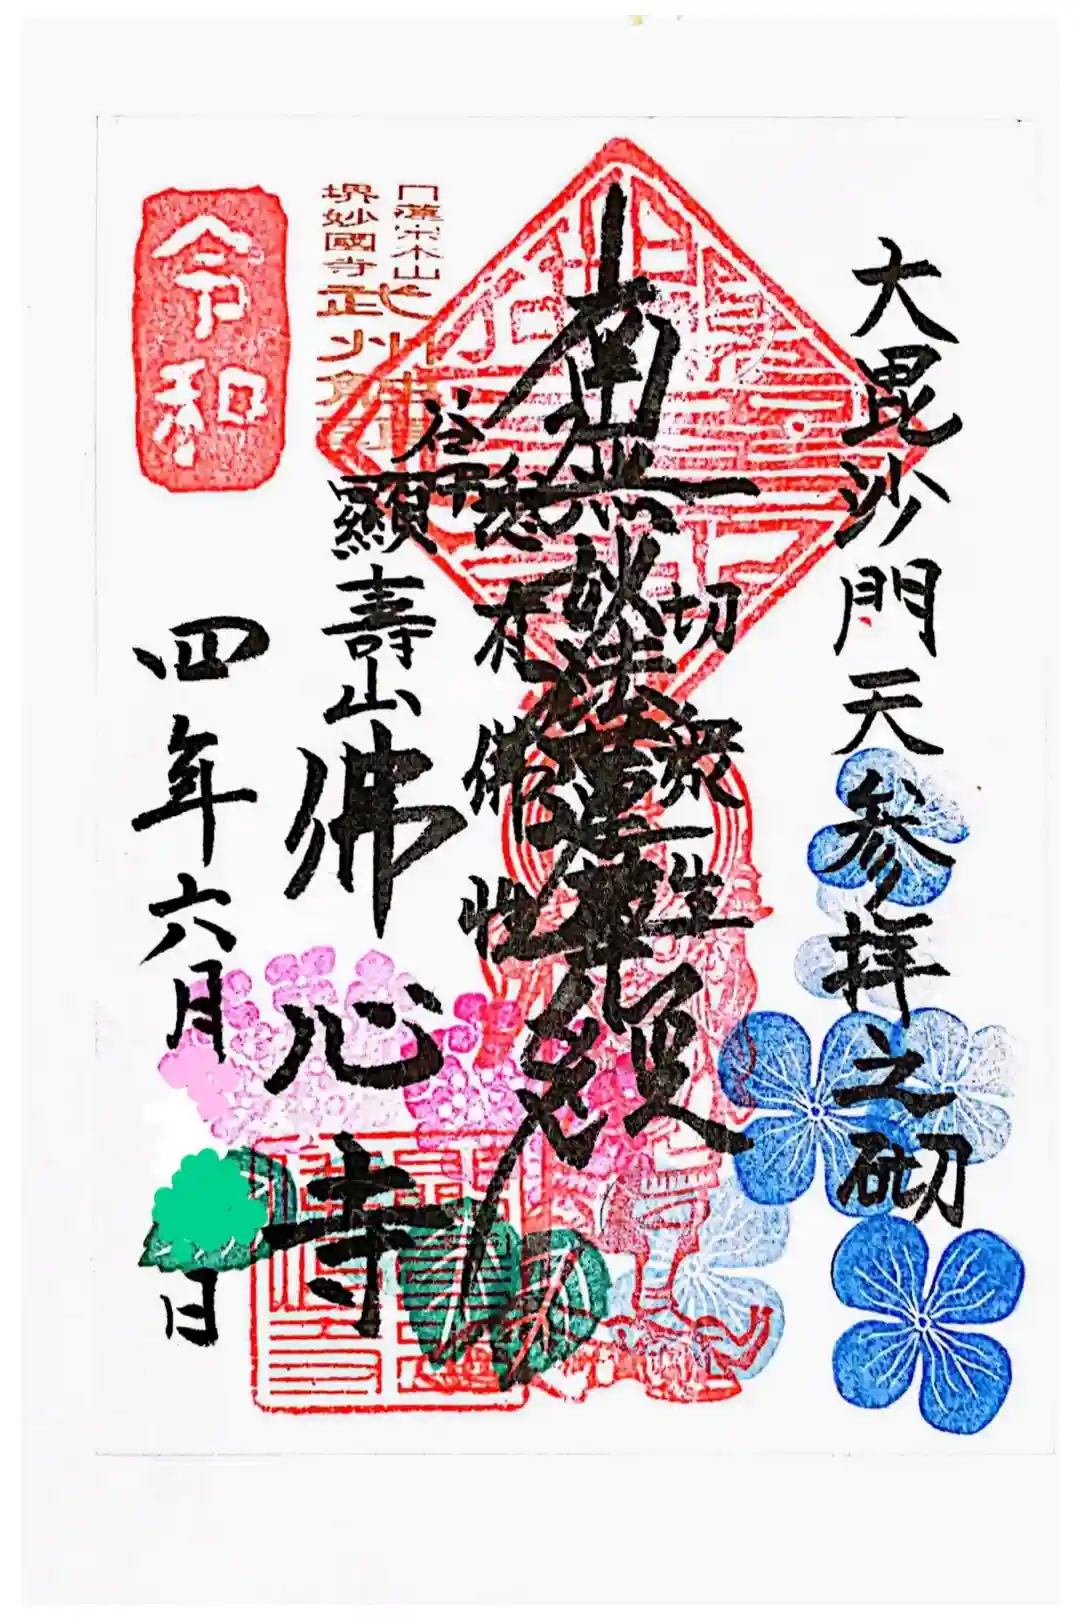 大毘沙門天参拝之砌
切衆生
南無妙法蓮華経
悉
有佛性
日蓮宗本山
堺妙國寺
武州
谷中
顯壽山佛心寺
令和
四年六月
日